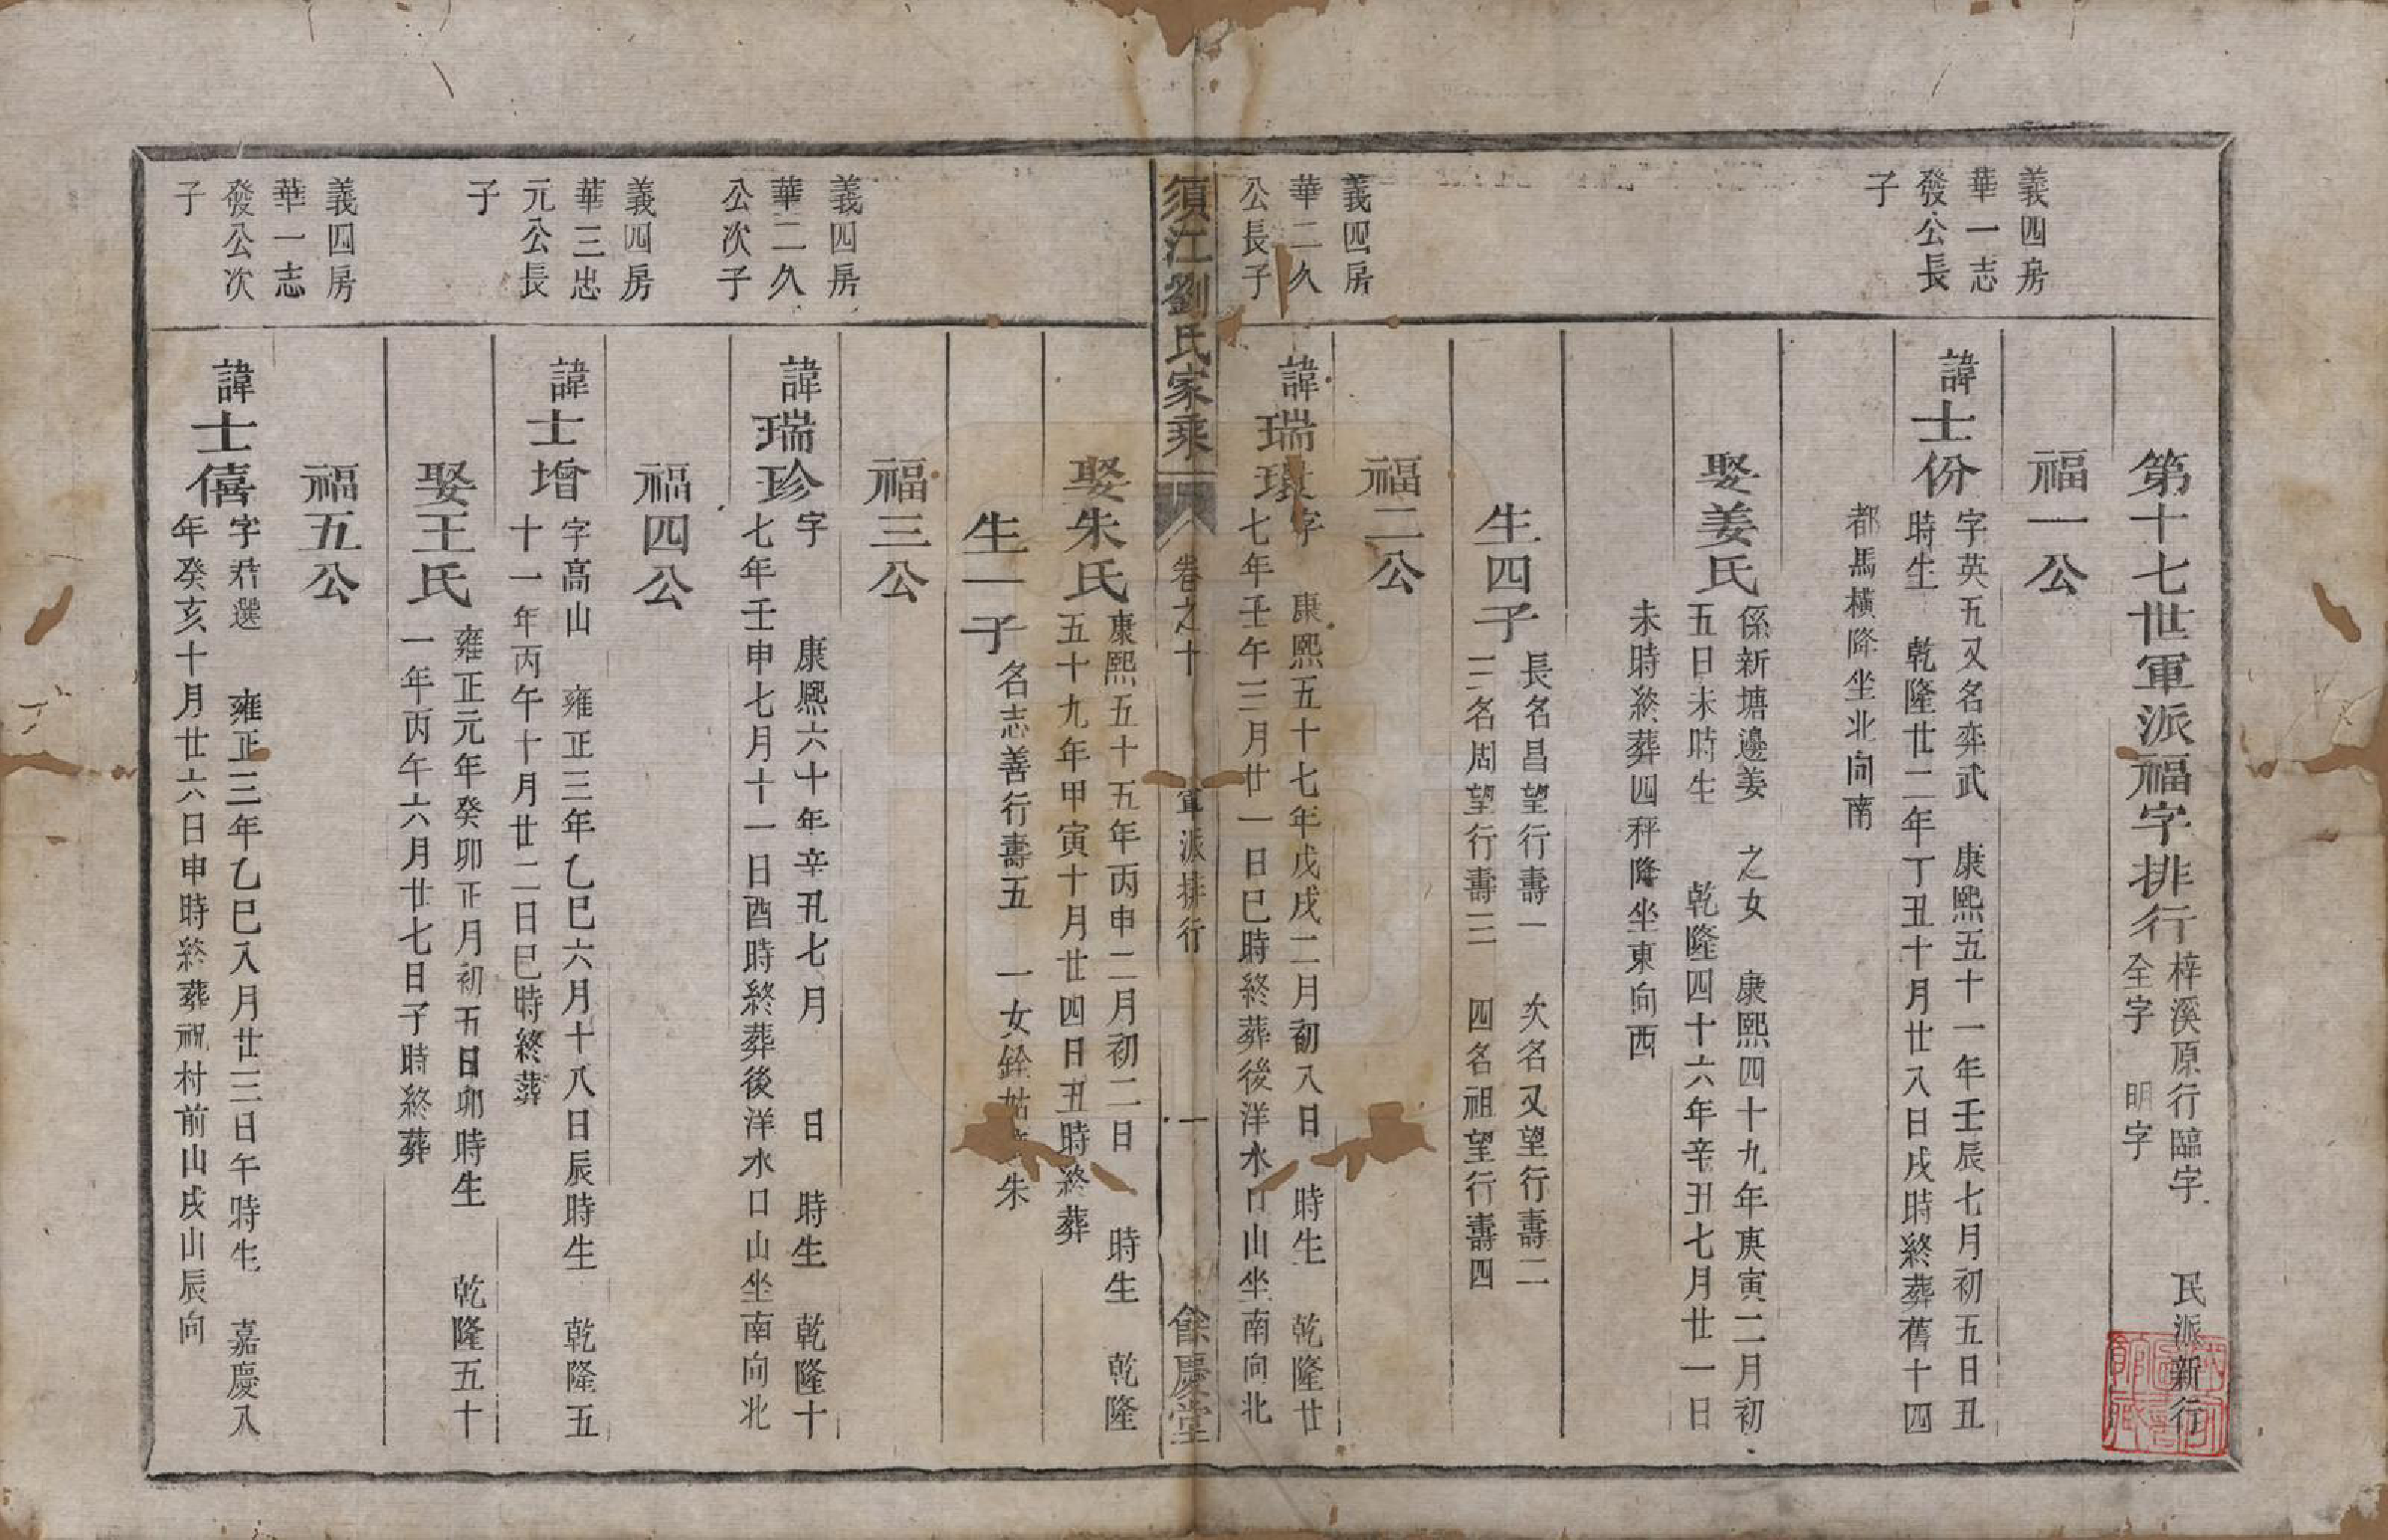 第十七世軍派福字排行
梓溪原行臨字 民派新行
全字 明字
福一公
義四房
華一志
發公長
子
諱士份
字英五又名弈武 康熙五十一年壬辰七月初五日丑
時生 乾隆廿二年丁丑十月廿八日戌時終葬舊十四
都馬橫降坐北向南
娶姜氏
係新塘邊姜 之女 康熙四十九年庚寅二月初
五日未時生 乾隆四十六年辛丑七月廿一日
未時終葬四秤降坐東向西
生四子
長名昌望行壽一 次名又望行壽二
三名周望行壽三 四名祖望行壽四
福二公
義四房
華二久
公長子
諱瑞
字 康熙五十七年戊戌二月初八日 時生 乾隆廿
七年壬午三月廿一日巳時終葬後洋水口山坐南向北
須江劉氏家乘
卷之十
軍派排行
一
餘慶堂
娶朱氏
康熙五十五年丙申二月初二日 時生 乾隆
五十九年甲寅十月廿四日丑時終葬
生一子
名志善行壽五 一女銓姑 朱
福三公
義四房
華二久
公次子
諱瑞珍
字 康熙六十年辛丑七月 日 時生 乾隆十
七年壬申七月十一日酉時終葬後洋水口山坐南向北
福四公
義四房
華三忠
元公長
子
諱士增
字高山 雍正三年乙巳六月十八日辰時生 乾隆五
十一年丙午十月廿二日巳時終葬
娶王氏
雍正元年癸卯正月初五日卯時生 乾隆五十
一年丙午六月廿七日子時終葬
福五公
義四房
華一志
發公次
子
諱士僖
字君選 雍正三年乙巳八月廿三日午時生 嘉慶八
年癸亥十月廿六日申時終葬祝村前山戌山辰向